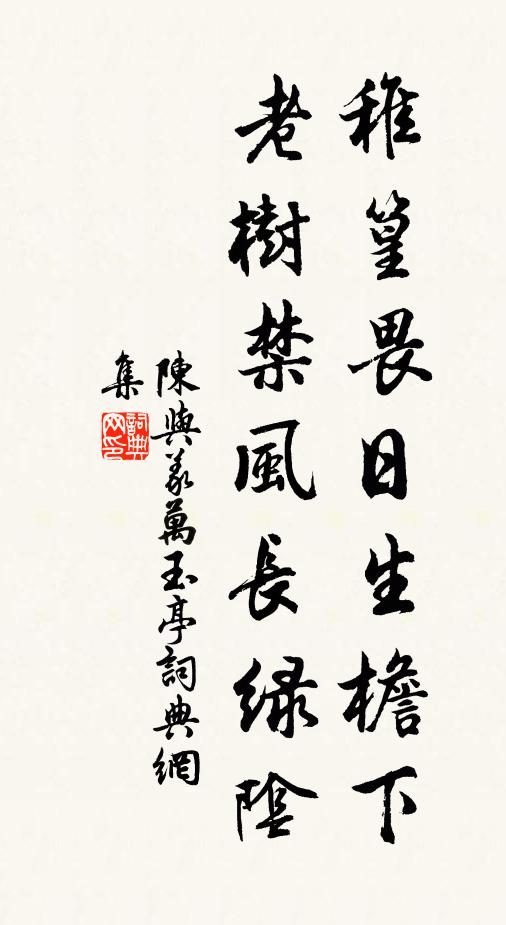 稚篁畏日生檐下
老樹禁風長緑陰
陳與義萬玉亭詞典網
集
詞典
网印